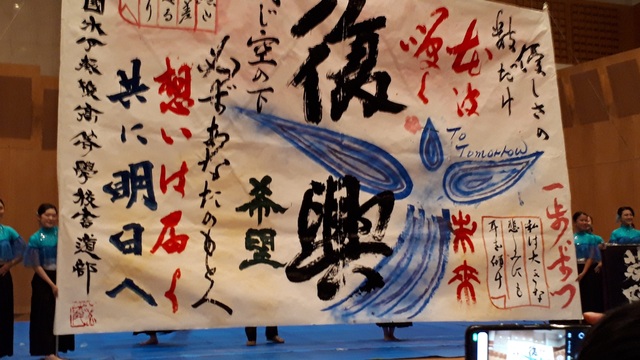 優しさの
数だけ
花波
咲く
To
Tomorrow
一歩ずつ
私は大きな
悲しみにも
未来
復興
じ空の下
希望
必ずあなたのもとへ
想いは届く
共に明日へ
高等學校書道部